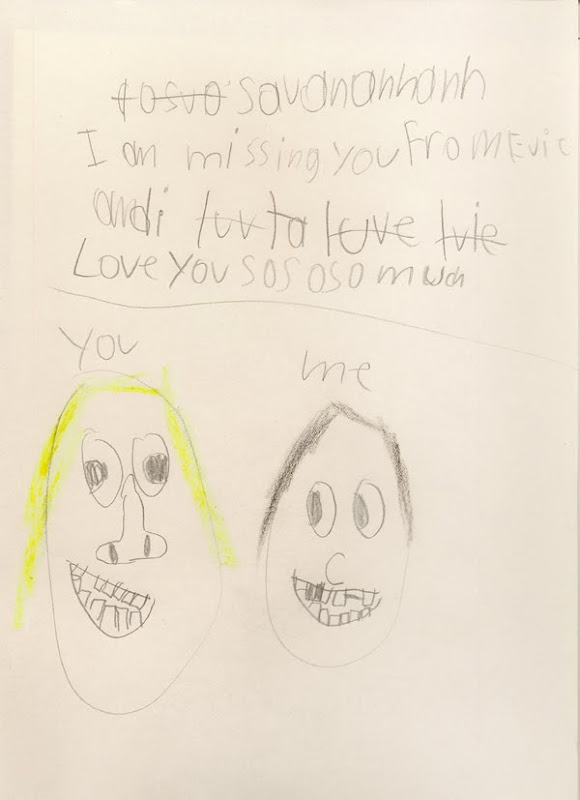 savananhanh
I am missing you From Evie
andi luv ta love Evie
Love you sososo much
you
me